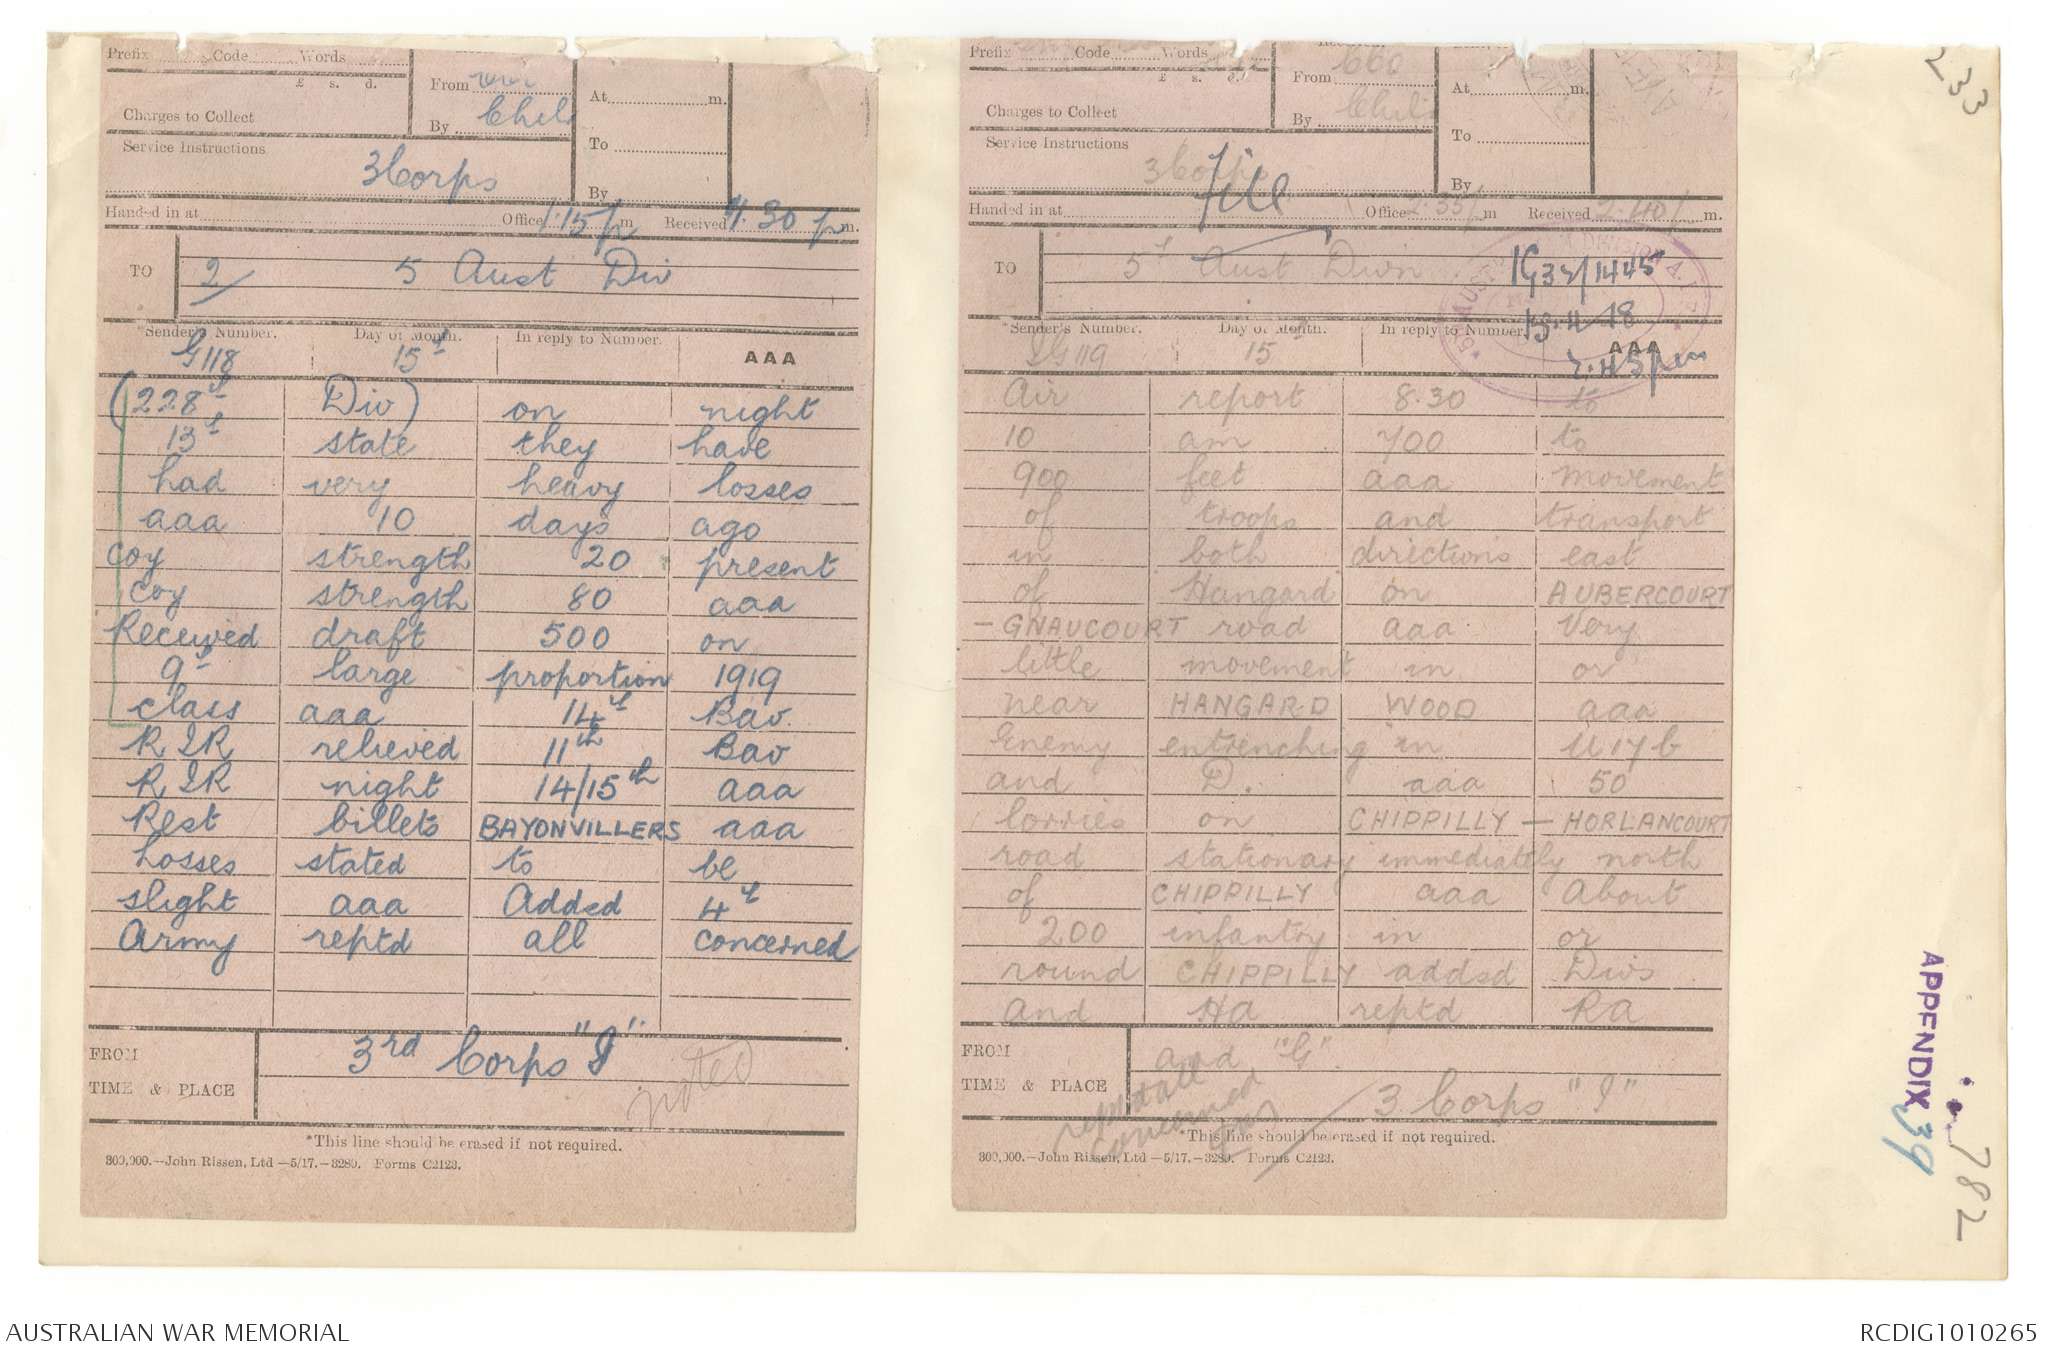 Prefix Code Words
£ s. d.
Charges to Collect
From
By Chil
At m.
To
By
Service Instructions
3 Corps
Handed in at Office 1.15 p m Received 4.30 p m.
TO
2/ 5 Aust Div
*Sender's Number. Day of Month. In reply to Number. AAA
G118 15th
(228th Div) on night
13th state they have
had very heavy losses
aaa 10 days ago
coy strength 20 present
coy strength 80 aaa
Received draft 500 on
9th large proportion 1919
class aaa 14th Bav.
R I R relieved 11th Bav
R I R night 14/15th aaa
Rest billets BAYONVILLERS aaa
Losses stated to be
slight aaa Added 4th
Army reptd all concerned
FROM
TIME & PLACE
3rd Corps "I"
noted
*This line should be erased if not required.
300,000.—John Rissen, Ltd —5/17.—3280. Forms C2123.
Prefix Code Words
£ s. d.
Charges to Collect
From
By Chil
At m.
To
By
Service Instructions
3 Corps
File
Handed in at Office 2.35 p m Received 2.40 m.
TO
5th Aust Divn
*Sender's Number. Day of Month. In reply to Number. AAA
IG119 15th
2.45 pm
Air report 8.30 to
10 am 700 to
900 feet aaa movement
of troops and transport
in both directions east
of Hangard on AUBERCOURT
- GNAUCOURT road aaa Very
little movement in or
near HANGARD WOOD aaa
Enemy entrenching in U17b
and D. aaa 50
lorries on CHIPPILLY — HORLANCOURT
road stationary immediately north
of CHIPPILLY aaa About
200 infantry in or
round CHIPPILLY added Divs
and HA reptd RA
FROM
TIME & PLACE
and "G".
3 Corps "I"
reptd all
concerned
*This line should be erased if not required.
300,000.—John Rissen, Ltd —5/17.—3280. Forms C2123.
233
APPENDIX 39
782
AUSTRALIAN WAR MEMORIAL
RCDIG1010265